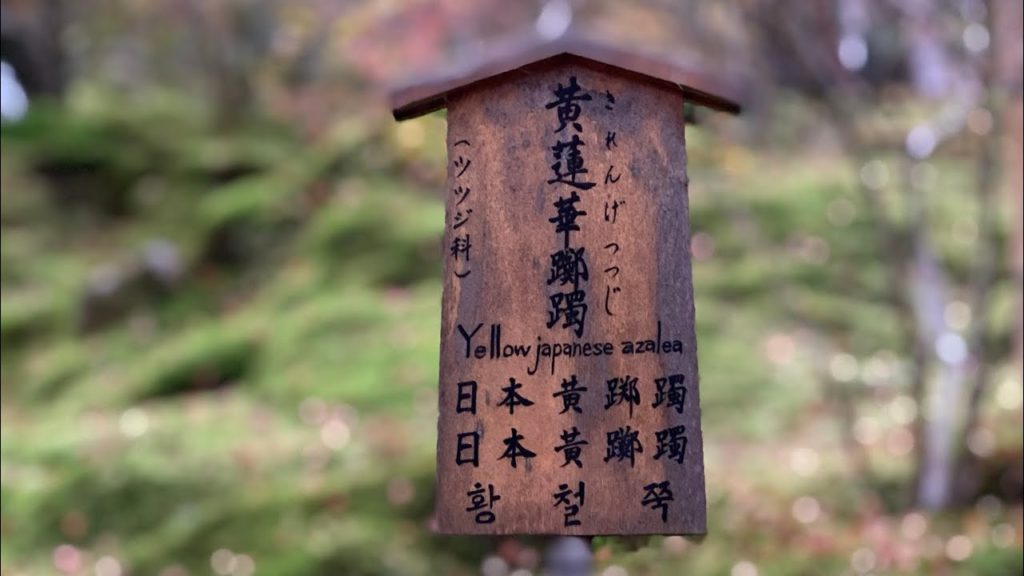 黄蓮華躑躅
きれんげつつじ
(ツツジ科)
Yellow japanese azalea
日本黄踯躅
日本黃躑躅
황철쭉